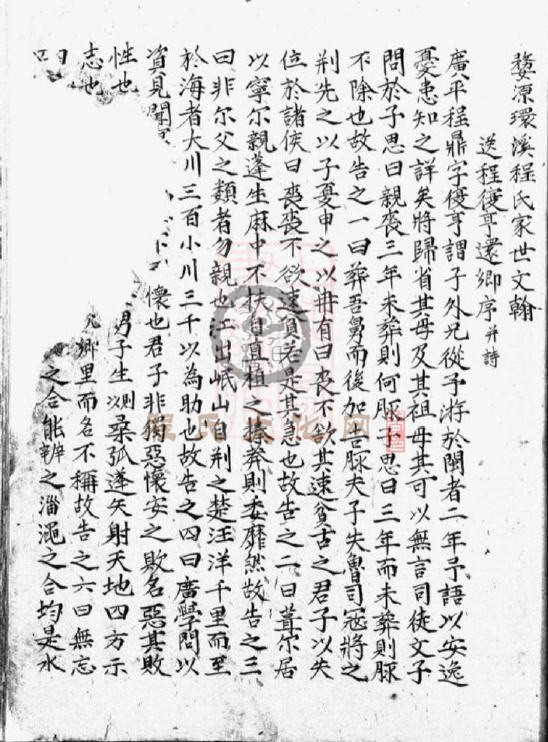 婺源環溪程氏家世文翰
送程復亨還鄉序并詩
廣平程鼎字復亨謂予外兄從予游於閩者二年予語以安逸
憂患知之詳矣將歸省其母及其祖母其可以無言司徒文子
問於子思曰親喪三年未葬則何服子思曰三年而未葬則服
不除也故告之一曰葬吾舅而後加吉服夫子失魯司寇將之
荊先之以子夏申之以冉有曰喪不欲其速貧古之君子以失
位於諸侯曰喪喪不欲速貧若是其急也故告之二曰葺尔居
以寧尔親蓬生麻中不扶自直植之榛莽則委靡然故告之三
曰非尔父之類者勿親也江出岷山自荊之楚汪洋千里而至
於海者大川三百小川三千以為助也故告之四曰廣學問以
資見聞
懷也君子非獨惡懷安之敗名惡其敗
性也
男子生則桑弧蓬矢射天地四方示
志也
鄉里而名不稱故告之六曰無忘
曰
之合能辨之淄澠之合均是水